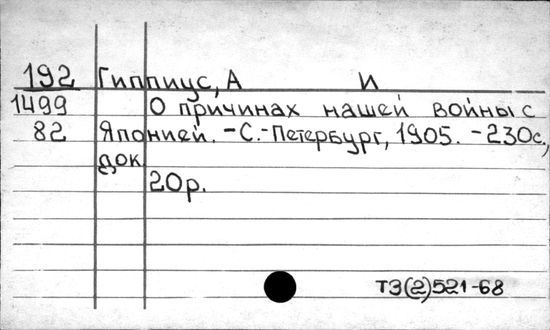 192 Гиппиус, А И
1499 О причинах нашей войны с
82 Японией. - С.-Петербург, 1905. - 230с.,
док
20р.
ТЗ(2)521-68